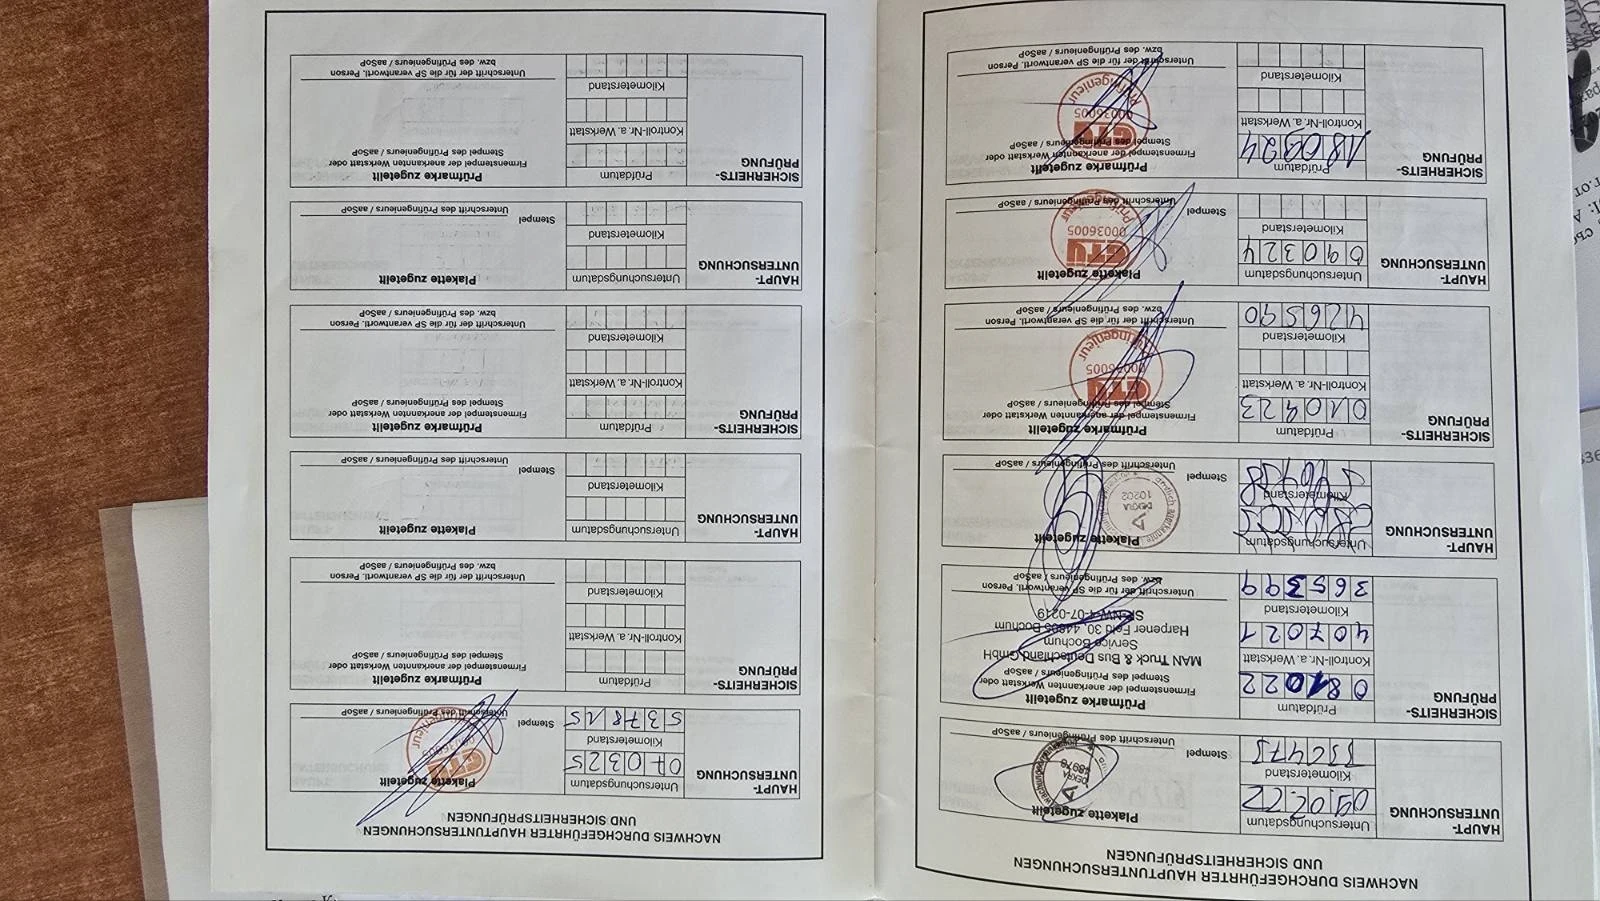 NACHWEIS DURCHGEFÜHRTER HAUPTUNTERSUCHUNGEN
UND SICHERHEITSPRÜFUNGEN
HAUPT-
UNTERSUCHUNG
Untersuchungsdatum
Kilometerstand
Plakette zugeteilt
DEKRA
Stempel
Unterschrift des Prüfingenieurs / aaSoP
SICHERHEITS-
PRÜFUNG
Prüfdatum
081022
Kontroll-Nr. a. Werkstatt
407021
Kilometerstand
365399
Prüfmarke zugeteilt
Firmenstempel der anerkannten Werkstatt oder
Stempel des Prüfingenieurs / aaSoP
MAN Truck & Bus Deutschland GmbH
Service Bochum
Harpener Feld 30, 44805 Bochum
SP-NW-4-07-0219
Unterschrift der für die SP verantwortl. Person
bzw. des Prüfingenieurs / aaSoP
HAUPT-
UNTERSUCHUNG
Untersuchungsdatum
Kilometerstand
Plakette zugeteilt
DEKRA
10202
Stempel
Unterschrift des Prüfingenieurs / aaSoP
SICHERHEITS-
PRÜFUNG
Prüfdatum
010423
Kontroll-Nr. a. Werkstatt
Kilometerstand
426590
Prüfmarke zugeteilt
Firmenstempel der anerkannten Werkstatt oder
Stempel des Prüfingenieurs / aaSoP
GTÜ
00036005
Prüfingenieur
Unterschrift der für die SP verantwortl. Person
bzw. des Prüfingenieurs / aaSoP
HAUPT-
UNTERSUCHUNG
Untersuchungsdatum
090324
Kilometerstand
Plakette zugeteilt
GTÜ
00036005
Prüfingenieur
Stempel
Unterschrift des Prüfingenieurs / aaSoP
SICHERHEITS-
PRÜFUNG
Prüfdatum
180924
Kontroll-Nr. a. Werkstatt
Kilometerstand
Prüfmarke zugeteilt
Firmenstempel der anerkannten Werkstatt oder
Stempel des Prüfingenieurs / aaSoP
GTÜ
00036005
Prüfingenieur
Unterschrift der für die SP verantwortl. Person
bzw. des Prüfingenieurs / aaSoP
NACHWEIS DURCHGEFÜHRTER HAUPTUNTERSUCHUNGEN
UND SICHERHEITSPRÜFUNGEN
HAUPT-
UNTERSUCHUNG
Untersuchungsdatum
070325
Kilometerstand
537815
Plakette zugeteilt
GTÜ
00036005
Prüfingenieur
Stempel
Unterschrift des Prüfingenieurs / aaSoP
SICHERHEITS-
PRÜFUNG
Prüfdatum
Kontroll-Nr. a. Werkstatt
Kilometerstand
Prüfmarke zugeteilt
Firmenstempel der anerkannten Werkstatt oder
Stempel des Prüfingenieurs / aaSoP
Unterschrift der für die SP verantwortl. Person
bzw. des Prüfingenieurs / aaSoP
HAUPT-
UNTERSUCHUNG
Untersuchungsdatum
Kilometerstand
Plakette zugeteilt
Stempel
Unterschrift des Prüfingenieurs / aaSoP
SICHERHEITS-
PRÜFUNG
Prüfdatum
Kontroll-Nr. a. Werkstatt
Kilometerstand
Prüfmarke zugeteilt
Firmenstempel der anerkannten Werkstatt oder
Stempel des Prüfingenieurs / aaSoP
Unterschrift der für die SP verantwortl. Person
bzw. des Prüfingenieurs / aaSoP
HAUPT-
UNTERSUCHUNG
Untersuchungsdatum
Kilometerstand
Plakette zugeteilt
Stempel
Unterschrift des Prüfingenieurs / aaSoP
SICHERHEITS-
PRÜFUNG
Prüfdatum
Kontroll-Nr. a. Werkstatt
Kilometerstand
Prüfmarke zugeteilt
Firmenstempel der anerkannten Werkstatt oder
Stempel des Prüfingenieurs / aaSoP
Unterschrift der für die SP verantwortl. Person
bzw. des Prüfingenieurs / aaSoP